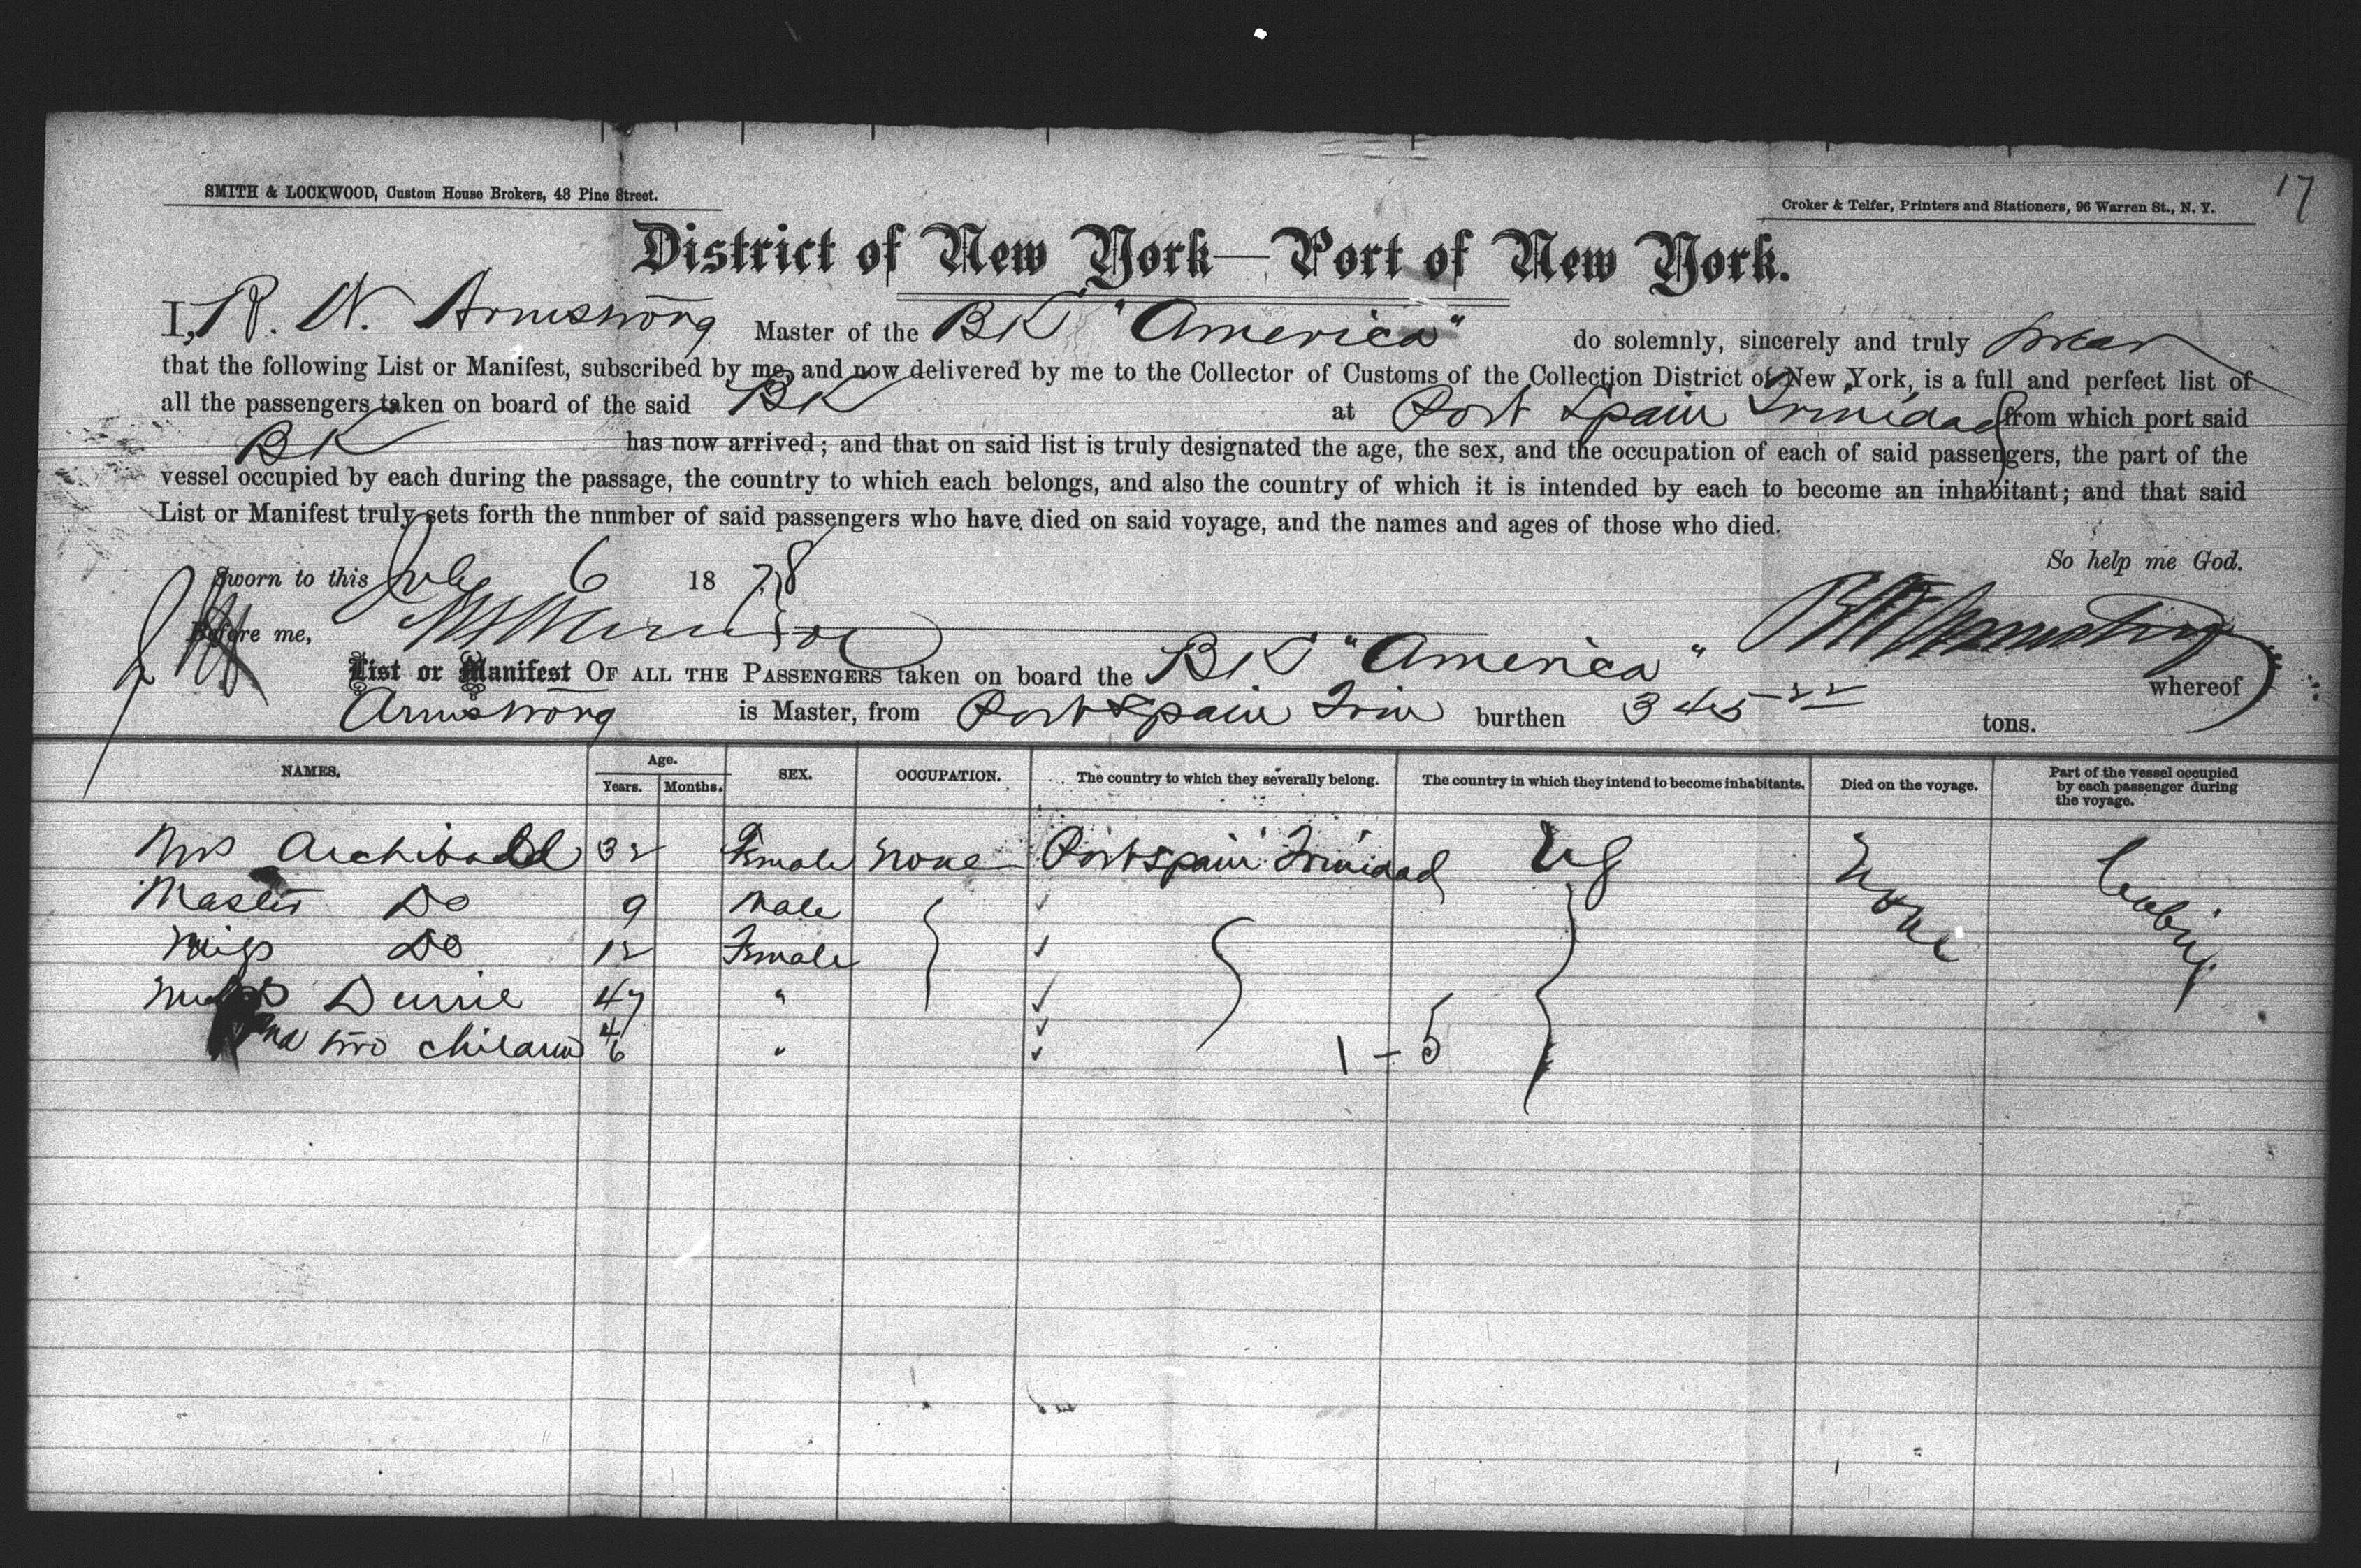 17
SMITH & LOCKWOOD, Custom House Brokers, 48 Pine Street.
Croker & Telfer, Printers and Stationers, 96 Warren St., N. Y.
District of New York—Port of New York.
I, R. W. Armstrong Master of the BK "America" do solemnly, sincerely and truly swear
that the following List or Manifest, subscribed by me, and now delivered by me to the Collector of Customs of the Collection District of New York, is a full and perfect list of
all the passengers taken on board of the said BK at Port Spain Trinidad from which port said
BK has now arrived; and that on said list is truly designated the age, the sex, and the occupation of each of said passengers, the part of the
vessel occupied by each during the passage, the country to which each belongs, and also the country of which it is intended by each to become an inhabitant; and that said
List or Manifest truly sets forth the nnmber of said passengers who have died on said voyage, and the names and ages of those who died.
So help me God.
Sworn to this July 6 1878
Before me,
R W Armstrong
List or Manifest OF ALL THE PASSENGERS taken on board the BK "America" whereof
Armstrong is Master, from Port Spain Trin burthen 345 22 tons.
NAMES. Age. Years. Months. SEX. OCCUPATION. The country to which they severally belong. The country in which they intend to become inhabitants. Died on the voyage. Part of the vessel occupied by each passenger during the voyage.
Mrs Archibald 32 Female None Port spain Trinidad None Cabin
Master Do 9 Male
Miss Do 12 Female
Durie 47 "
and two children 4 6 " 1 - 5